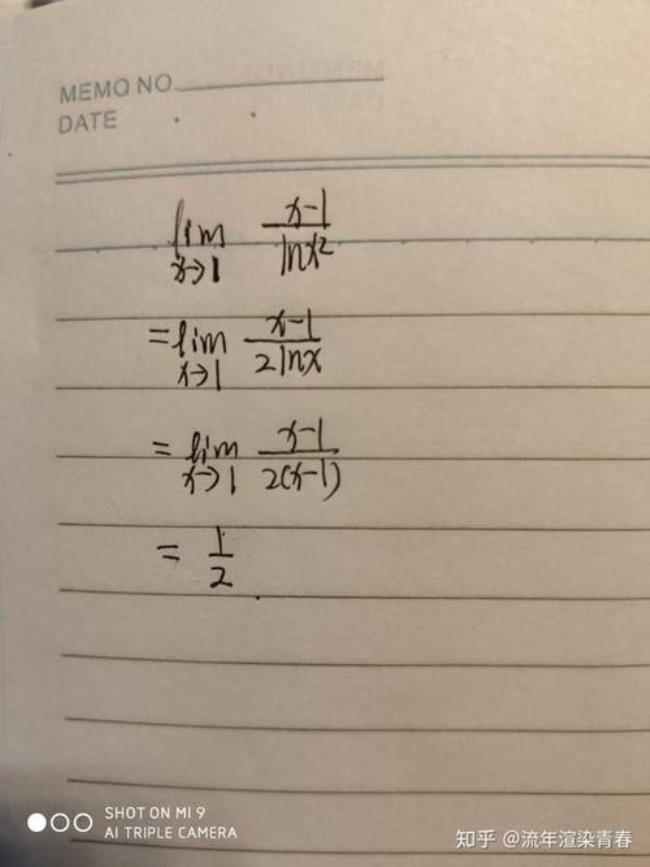 MEMO NO.
DATE . .
lim x→1 (x-1)/(lnx²)
=lim x→1 (x-1)/(2lnx)
=lim x→1 (x-1)/(2(x-1))
= 1/2
SHOT ON MI 9
AI TRIPLE CAMERA
知乎 @流年渲染青春